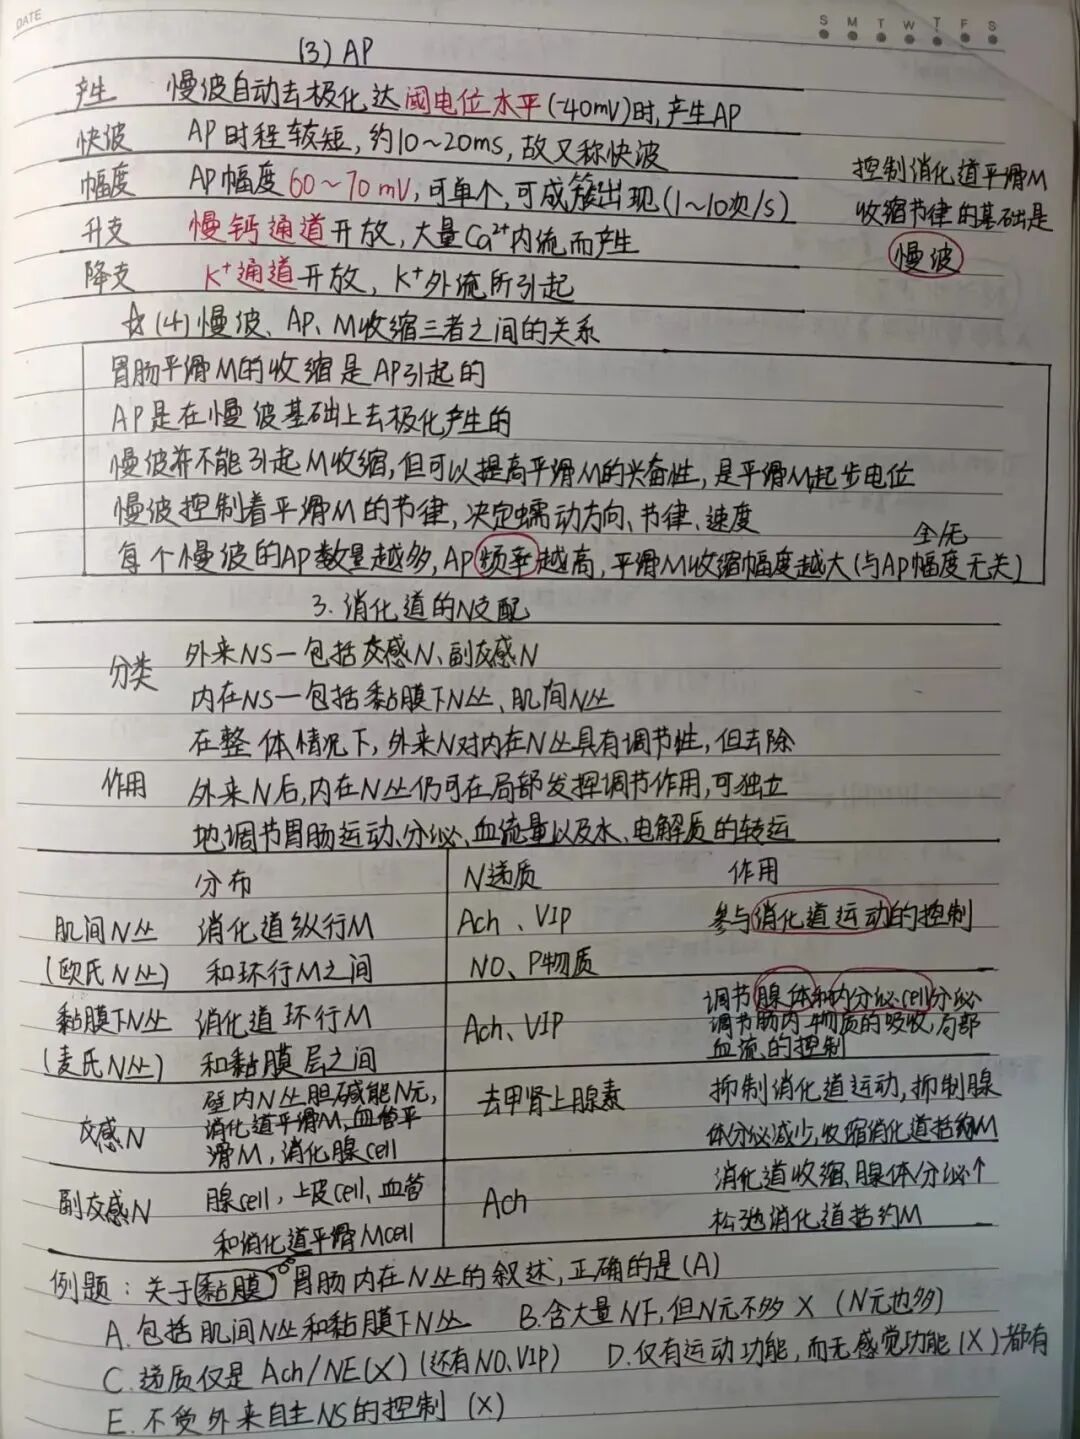 DATE
S M T W T F S
(3) AP
产生 慢波自动去极化达阈电位水平(-40mV)时,产生AP
快波 AP时程较短,约10~20ms,故又称快波
幅度 AP幅度60~70mV,可单个,可成簇出现(1~10次/s)
升支 慢钙通道开放,大量Ca²⁺内流而产生
降支 K⁺通道开放,K⁺外流所引起
控制消化道平滑M
收缩节律的基础是
慢波
☆(4)慢波、AP、M收缩三者之间的关系
胃肠平滑M的收缩是AP引起的
AP是在慢波基础上去极化产生的
慢波并不能引起M收缩,但可以提高平滑M的兴奋性,是平滑M起步电位
慢波控制着平滑M的节律,决定蠕动方向、节律、速度
全/无
每个慢波的AP数量越多,AP频率越高,平滑M收缩幅度越大(与AP幅度无关)
3.消化道的N支配
分类 外来NS—包括交感N、副交感N
内在NS—包括黏膜下N丛、肌间N丛
在整体情况下,外来N对内在N丛具有调节性,但去除
作用 外来N后,内在N丛仍可在局部发挥调节作用,可独立
地调节胃肠运动、分泌、血流量以及水、电解质的转运
分布 N递质 作用
肌间N丛 消化道纵行M Ach、VIP 参与消化道运动的控制
(欧氏N丛) 和环行M之间 NO、P物质
黏膜下N丛 消化道环行M Ach、VIP 调节腺体和内分泌cell分泌
调节肠内物质的吸收,局部
(麦氏N丛) 和黏膜层之间 血流的控制
交感N 壁内N丛胆碱能N元, 去甲肾上腺素 抑制消化道运动,抑制腺
消化道平滑M,血管平 体分泌减少,收缩消化道括约M
滑M,消化腺cell
副交感N 腺cell,上皮cell、血管 Ach 消化道收缩、腺体分泌↑
和消化道平滑Mcell 松弛消化道括约M
例题:关于黏膜胃肠内在N丛的叙述,正确的是(A)
A.包括肌间N丛和黏膜下N丛 B.含大量NF,但N元不多 X (N元也多)
C.递质仅是Ach/NE(X)(还有NO、VIP) D.仅有运动功能,而无感觉功能(X)都有
E.不受外来自主NS的控制 (X)